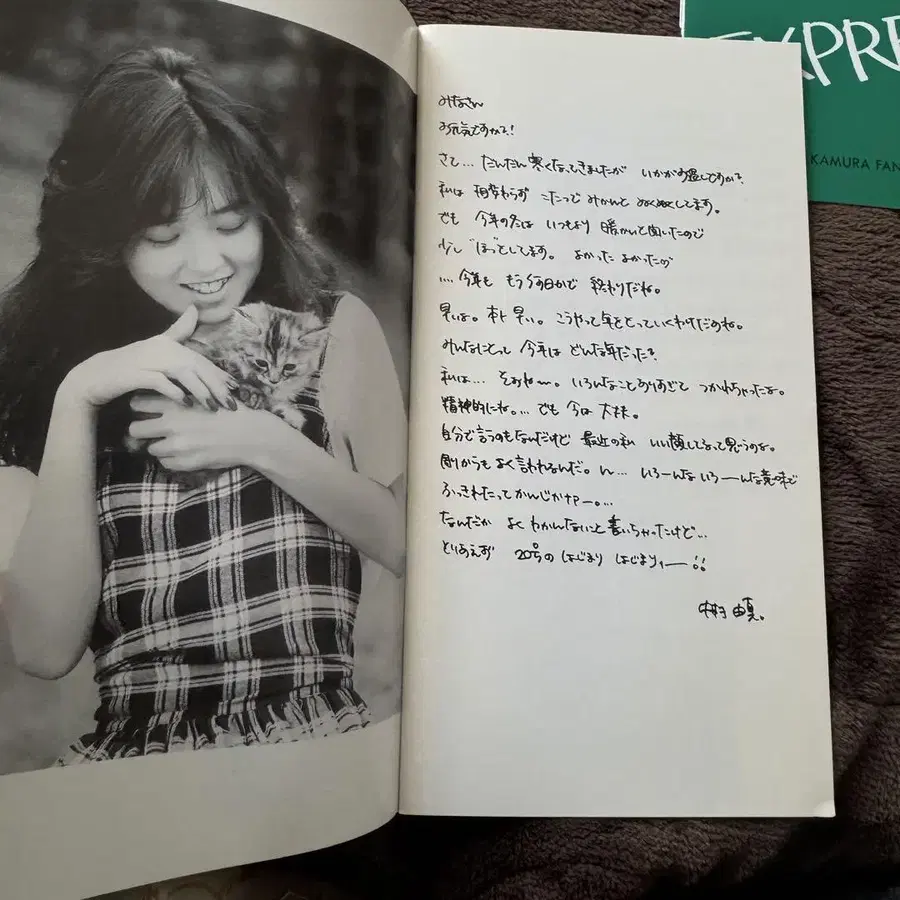 みなさん
お元気ですか?!
さて… だんだん寒くなってきましたが いかがお過しですか?
私は 相変わらず こたつで みかんと ぬくぬくしてます。
でも 今年の冬は いつもより 暖かいと聞いたので
少し "ほっ"としてます。 よかった よかったの
…今年も もう何日かで 終わりだね。
早いよ。ホント 早い。 こうやって年をとっていくわけだわね。
みんなにとって 今年は どんな年だった?
私は… そおねー。 いろんなことありすぎて つかれちゃったよ。
精神的にね。… でも 今は 大丈夫。
自分で言うのもなんだけど 最近の私 いい顔してるって思うのよ。
周りからも よく言われるんだ。 ん… いろーんな いろーんな意味で
ふっきれたって かんじかなァー。…
なんだか よくわかんないこと書いちゃったけど…
とりあえず 20号の はじまり はじまりィー!!
中村 由真。
EXPRE
KAMURA FAN